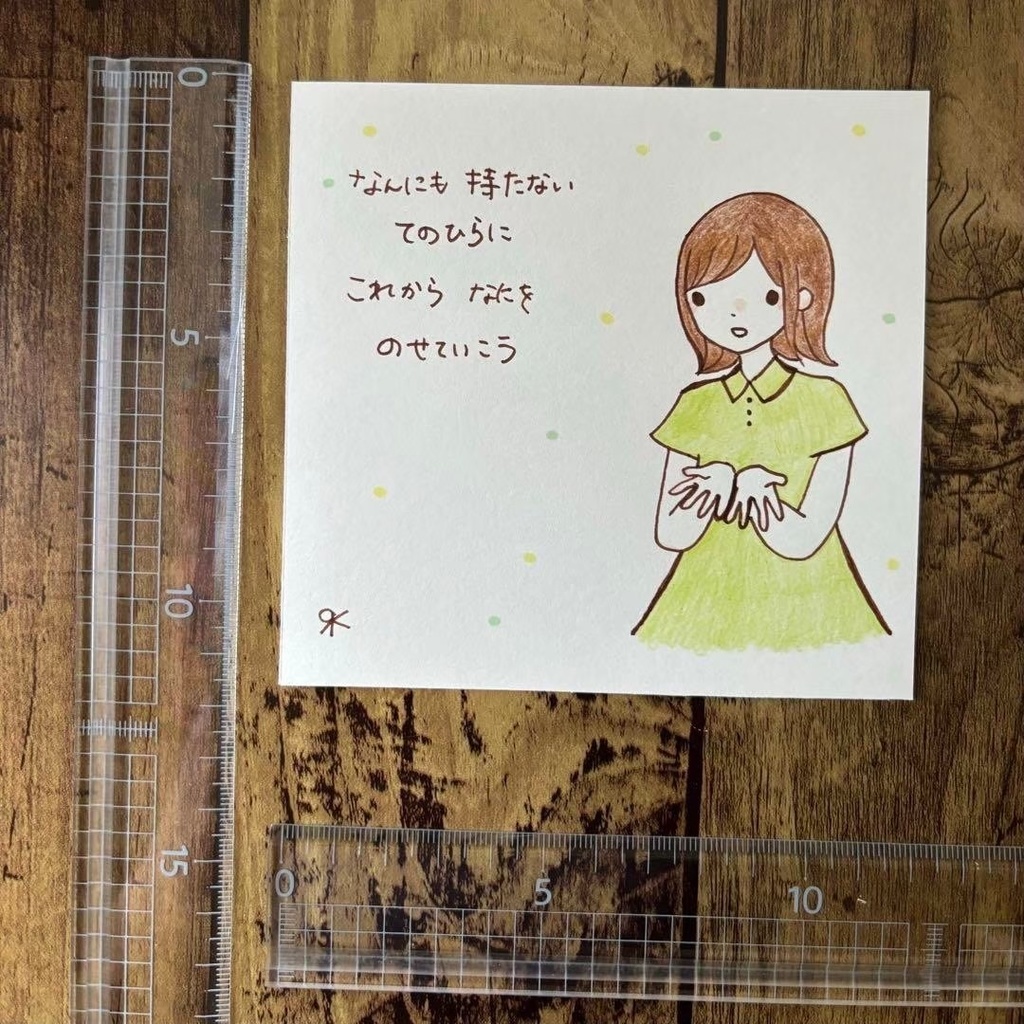 なんにも 持たない
てのひらに
これから なにを
のせていこう
0
5
10
15
0
5
10